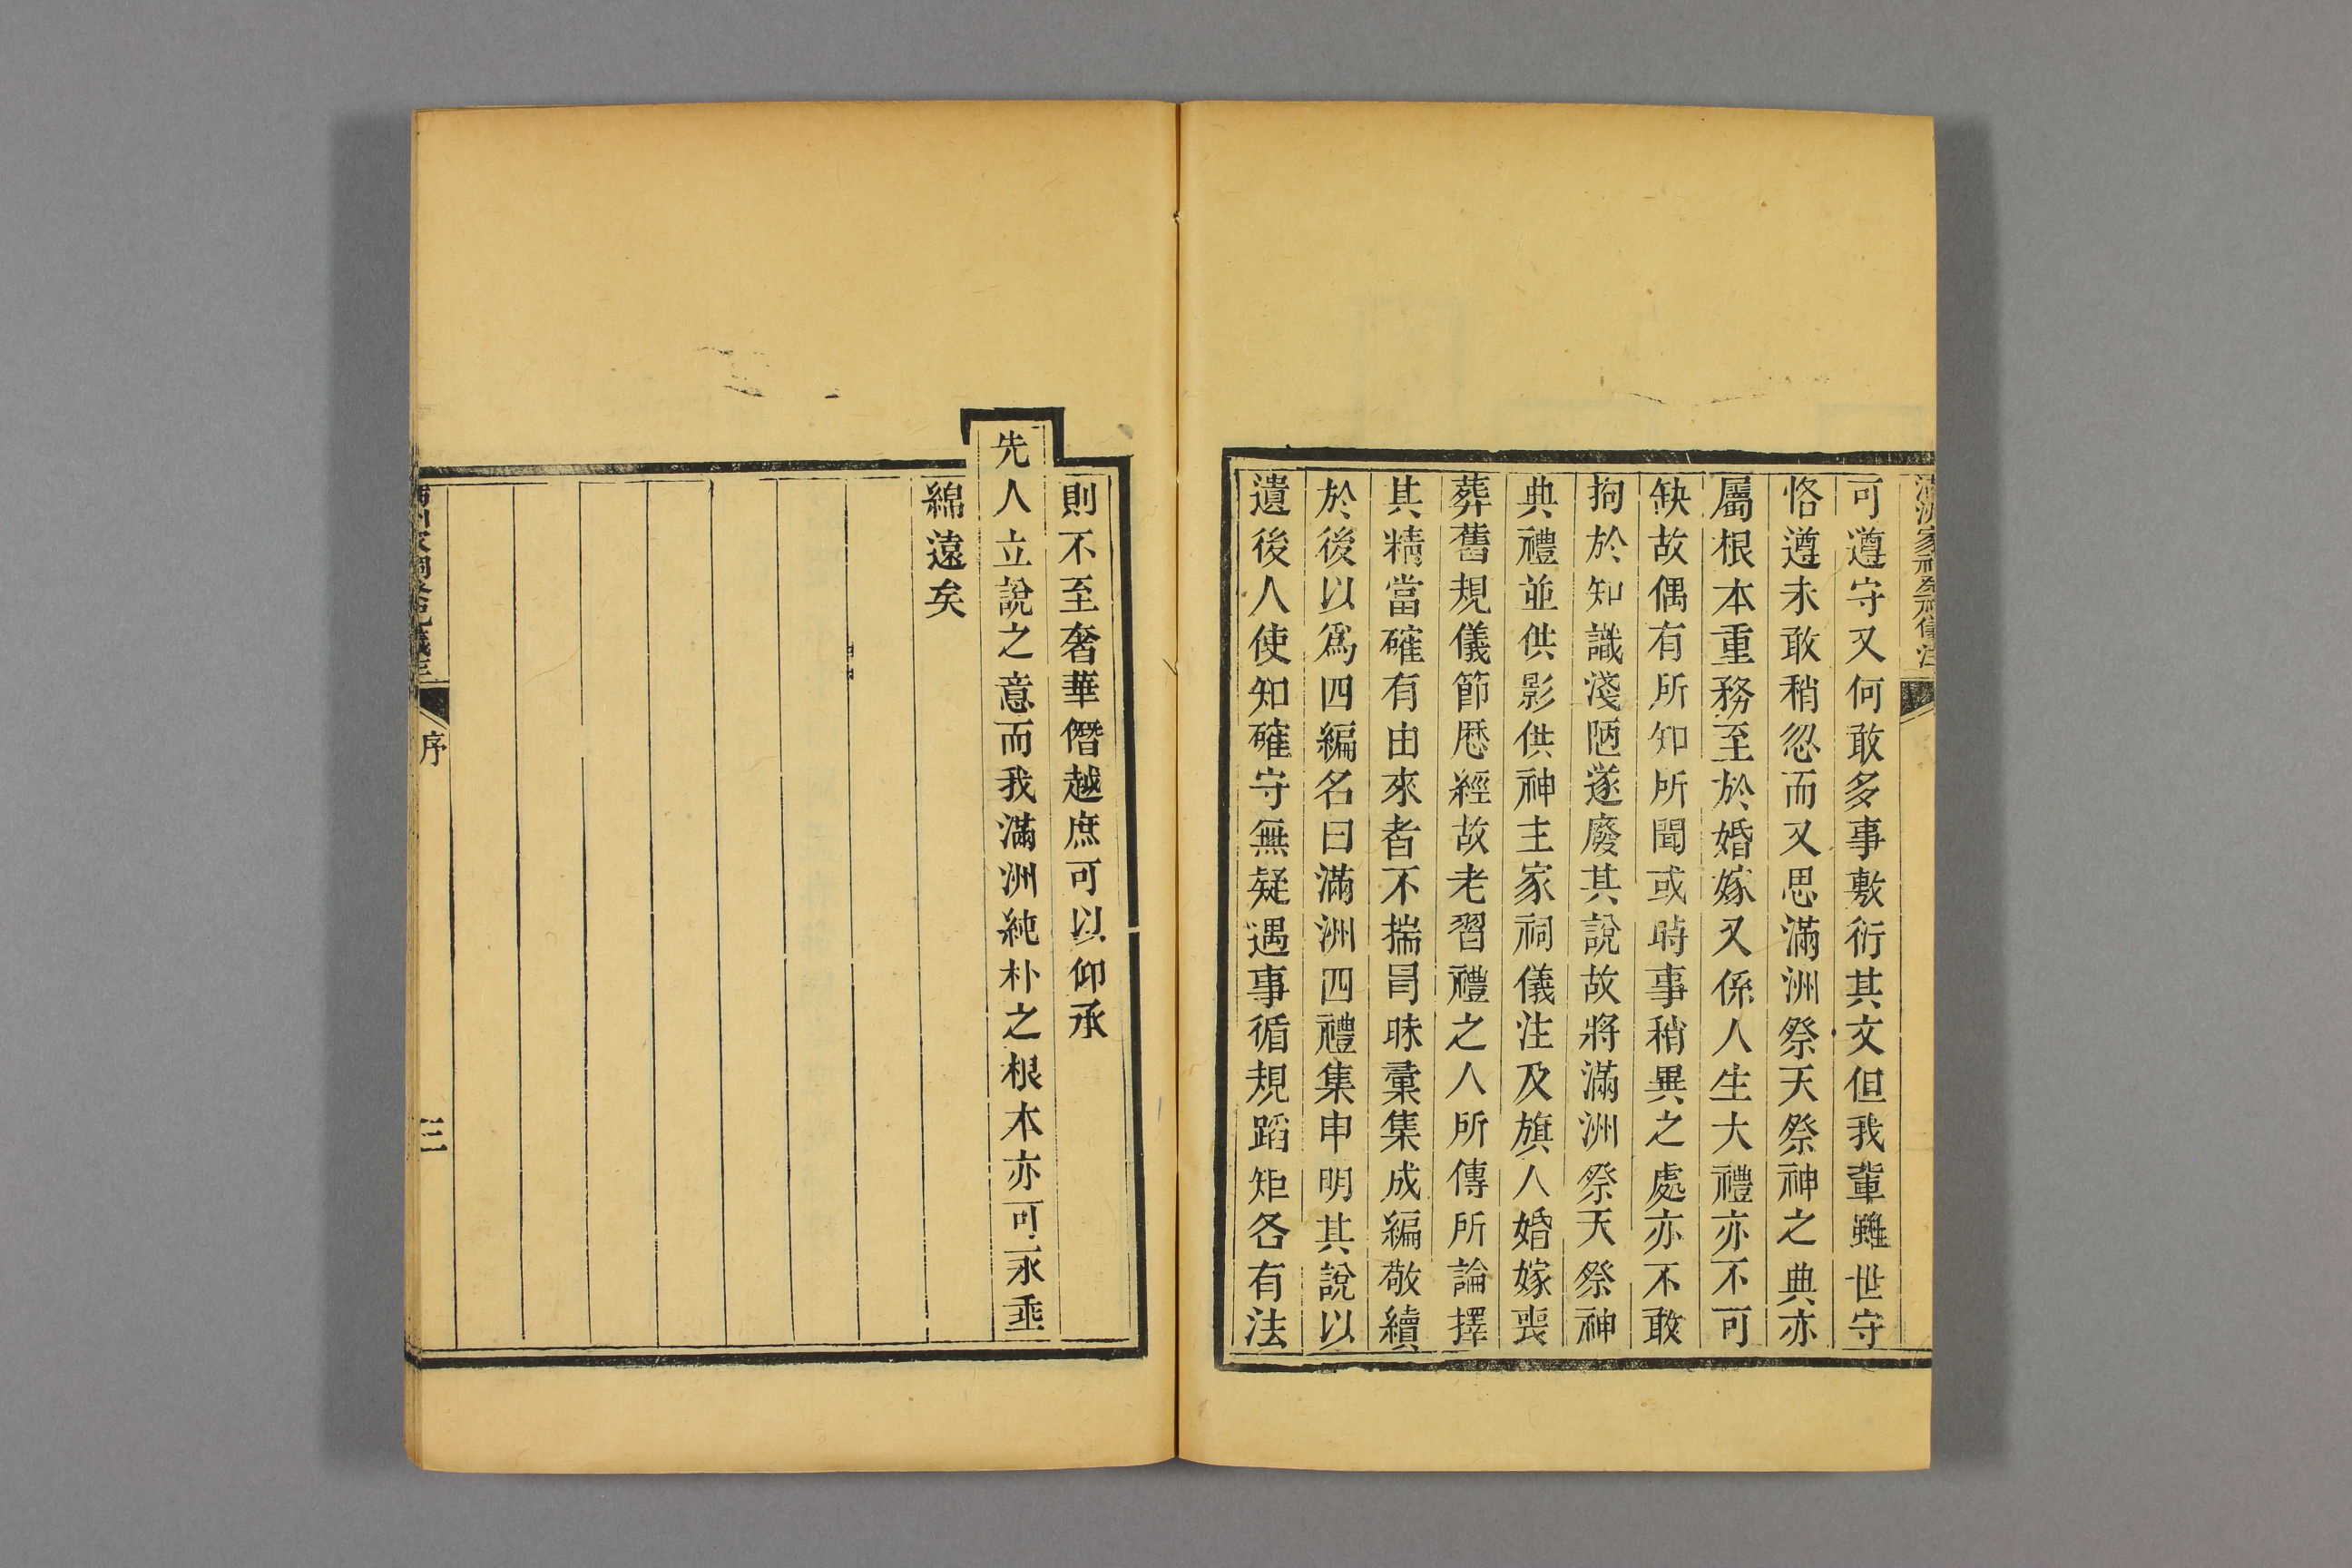 可遵守又何敢多事敷衍其文但我輩雖世守
恪遵未敢稍忽而又思滿洲祭天祭神之典亦
屬根本重務至於婚嫁又係人生大禮亦不可
缺故偶有所知所聞或時事稍異之處亦不敢
拘於知識淺陋遂廢其說故將滿洲祭天祭神
典禮並供影供神主家祠儀注及旗人婚嫁喪
葬舊規儀節歷經故老習禮之人所傳所論擇
其精當確有由來者不揣冐昧彙集成編敬續
於後以爲四編名曰滿洲四禮集申明其說以
遺後人使知確守無疑遇事循規蹈矩各有法
則不至奢華僭越庶可以仰承
先人立說之意而我滿洲純朴之根木亦可永垂
綿遠矣
序
三